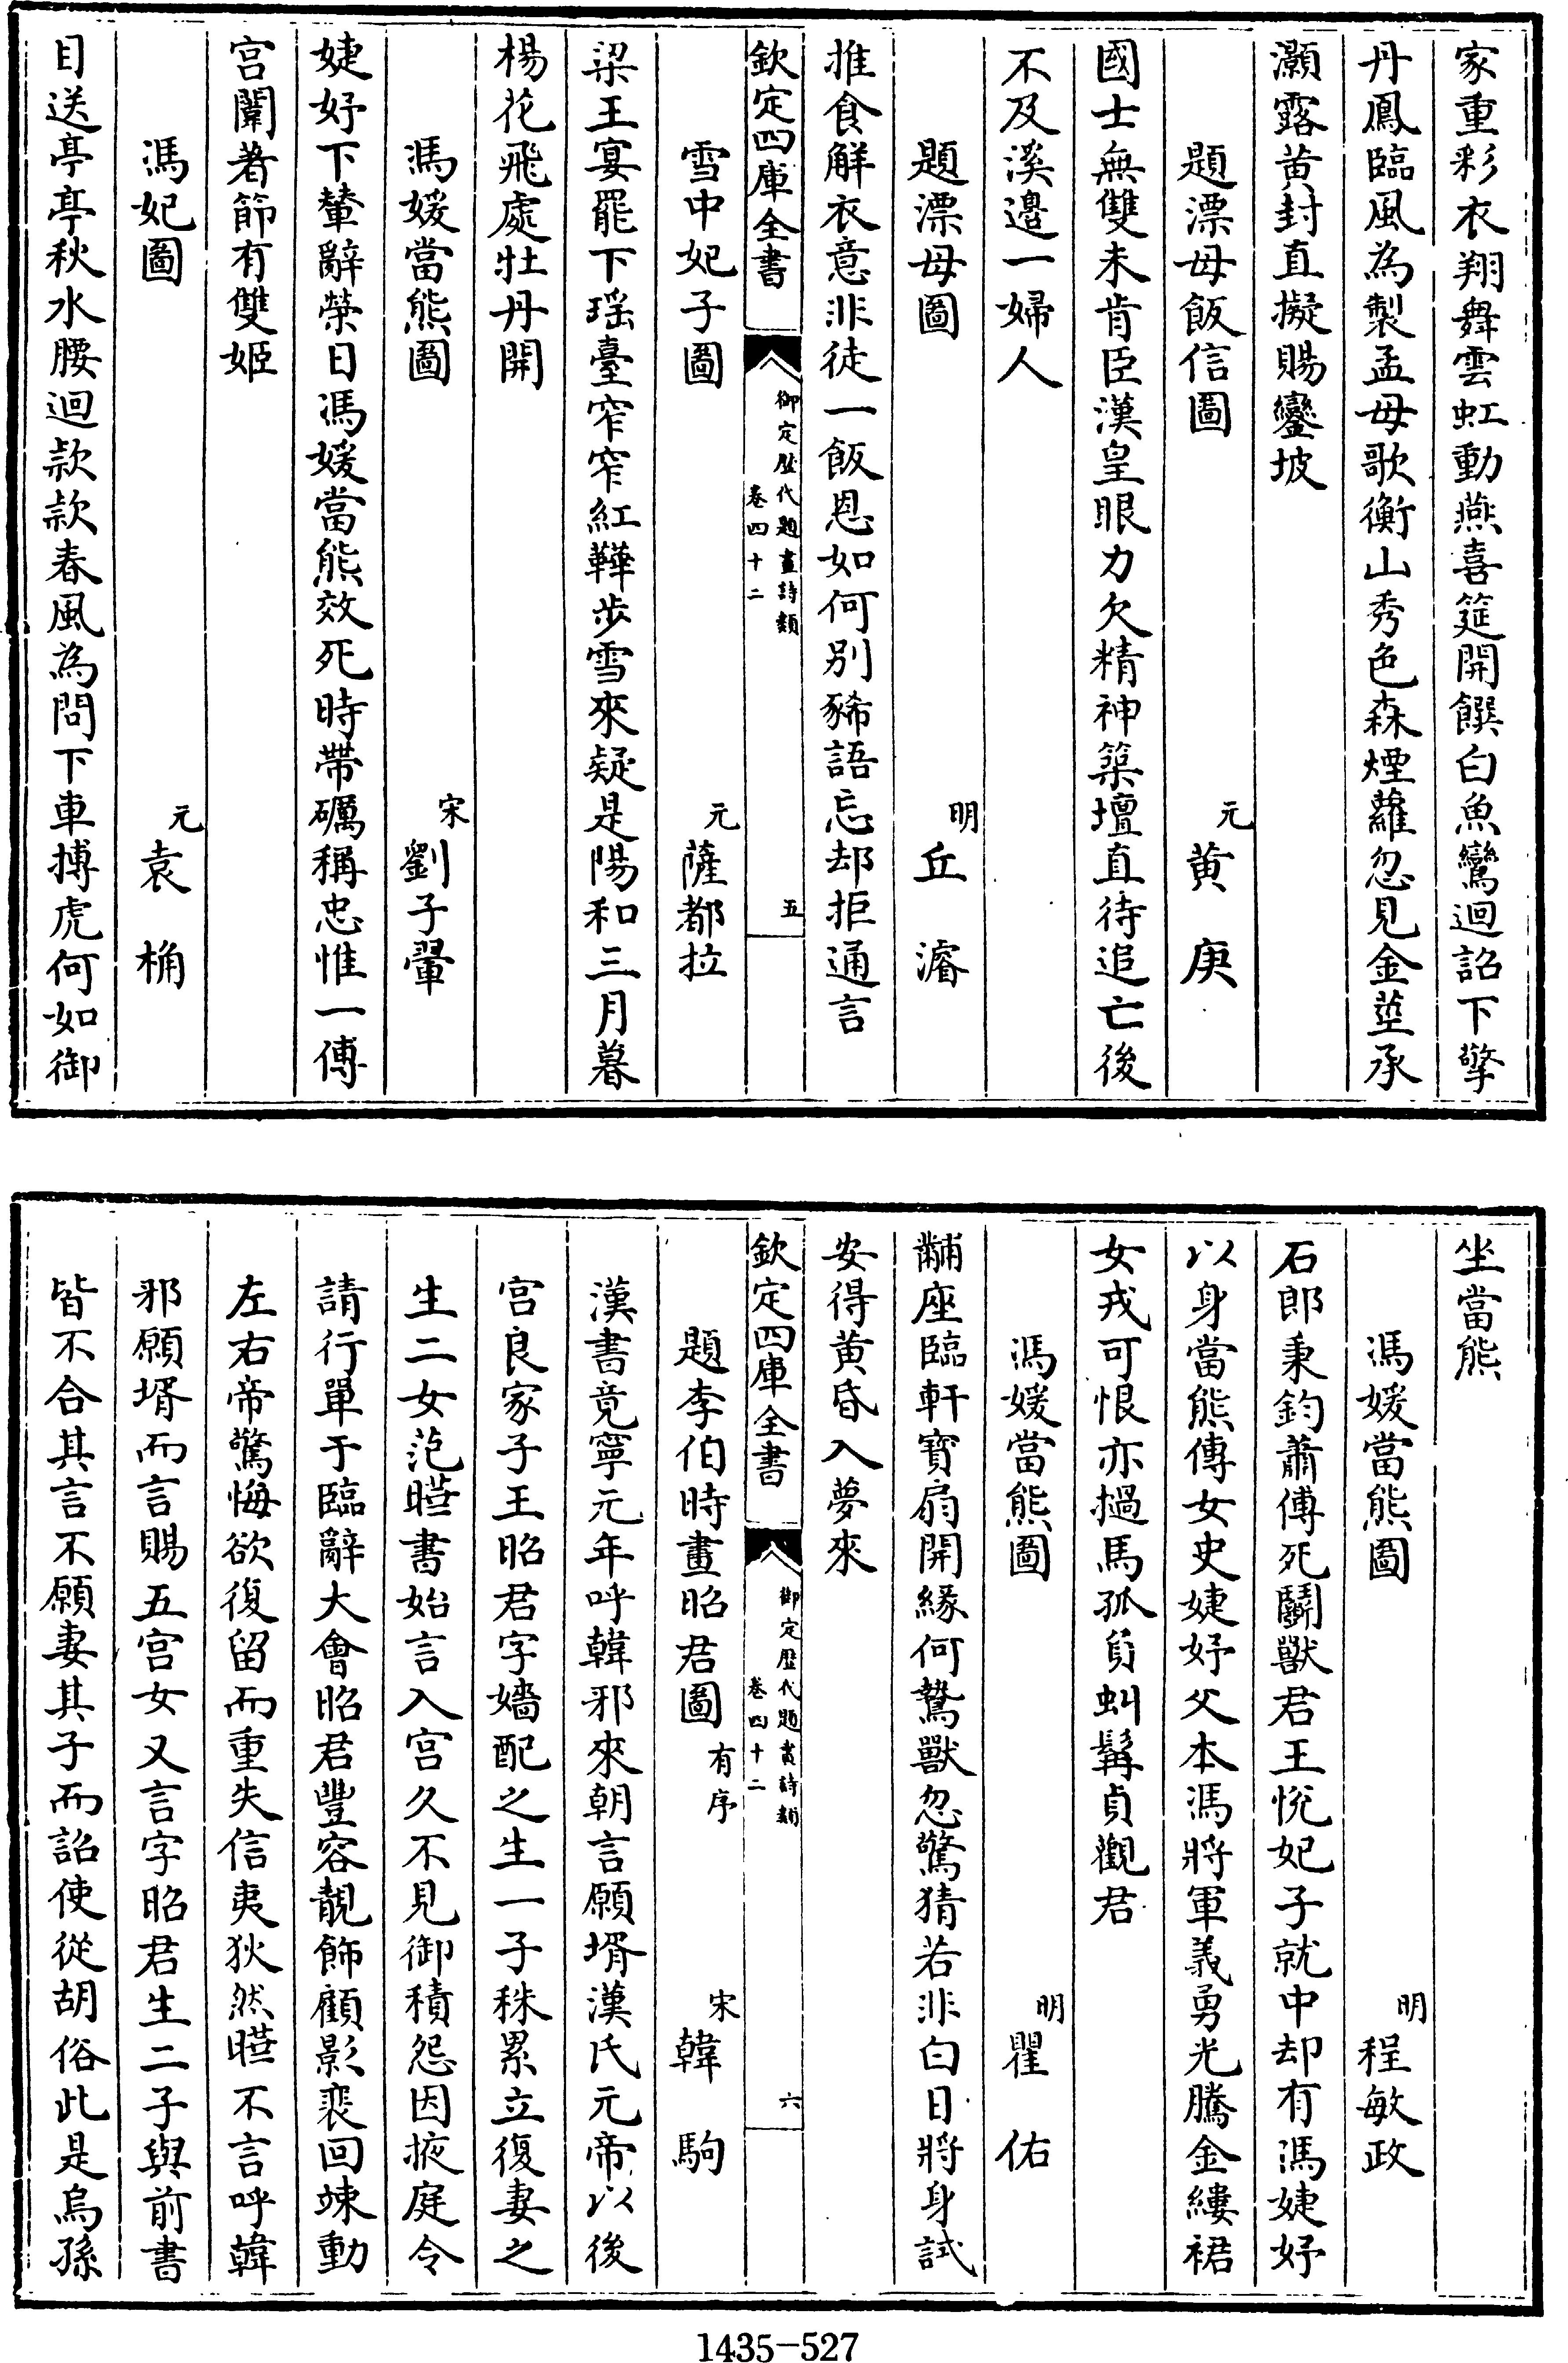 家重彩衣翔舞雲虹動燕喜筵開饌白魚鸞迴詔下擎
丹鳳臨風為製孟母歌衡山秀色森煙蘿忽見金莖承
灝露黄封直擬賜鑾坡
題漂母飯信圖　元黄庚
國士無雙未肯臣漢皇眼力欠精神築壇直待追亡後
不及溪邉一婦人
題漂母圖　明丘濬
推食解衣意非徒一飯恩如何别豨語忘却拒通言
欽定四庫全書　御定歷代題畫詩類　卷四十二　五
雪中妃子圖　元薩都拉
梁王宴罷下瑶臺窄窄紅鞾步雪來疑是陽和三月暮
楊花飛處牡丹開
馮媛當熊圖　宋劉子翬
婕妤下輦辭榮日馮媛當熊效死時帶礪稱忠惟一傅
宫闈著節有雙姬
馮妃圖　元袁桷
目送亭亭秋水腰迴款款春風為問下車搏虎何如御
坐當熊
馮媛當熊圖　明程敏政
石郎秉鈞蕭傅死鬬獸君王恱妃子就中却有馮婕妤
以身當熊傳女史婕妤父本馮將軍義勇光騰金縷裙
女戎可恨亦撾馬孤負虯髯貞觀君
馮媛當熊圖　明瞿佑
黼座臨軒寳扇開縁何鷙獸忽驚猜若非白日將身試
安得黄昏入夢來
欽定四庫全書　御定歷代題畫詩類　卷四十二　六
題李伯時畫昭君圖有序　宋韓駒
漢書竟寧元年呼韓邪來朝言願壻漢氏元帝以後
宫良家子王昭君字嬙配之生一子株累立復妻之
生二女范曄書始言入宫久不見御積怨因掖庭令
請行單于臨辭大會昭君豐容靚飾顧影裴回竦動
左右帝驚悔欲復留而重失信夷狄然曄不言呼韓
邪願壻而言賜五宫女又言字昭君生二子與前書
皆不合其言不願妻其子而詔使從胡俗此是烏孫
1435-527